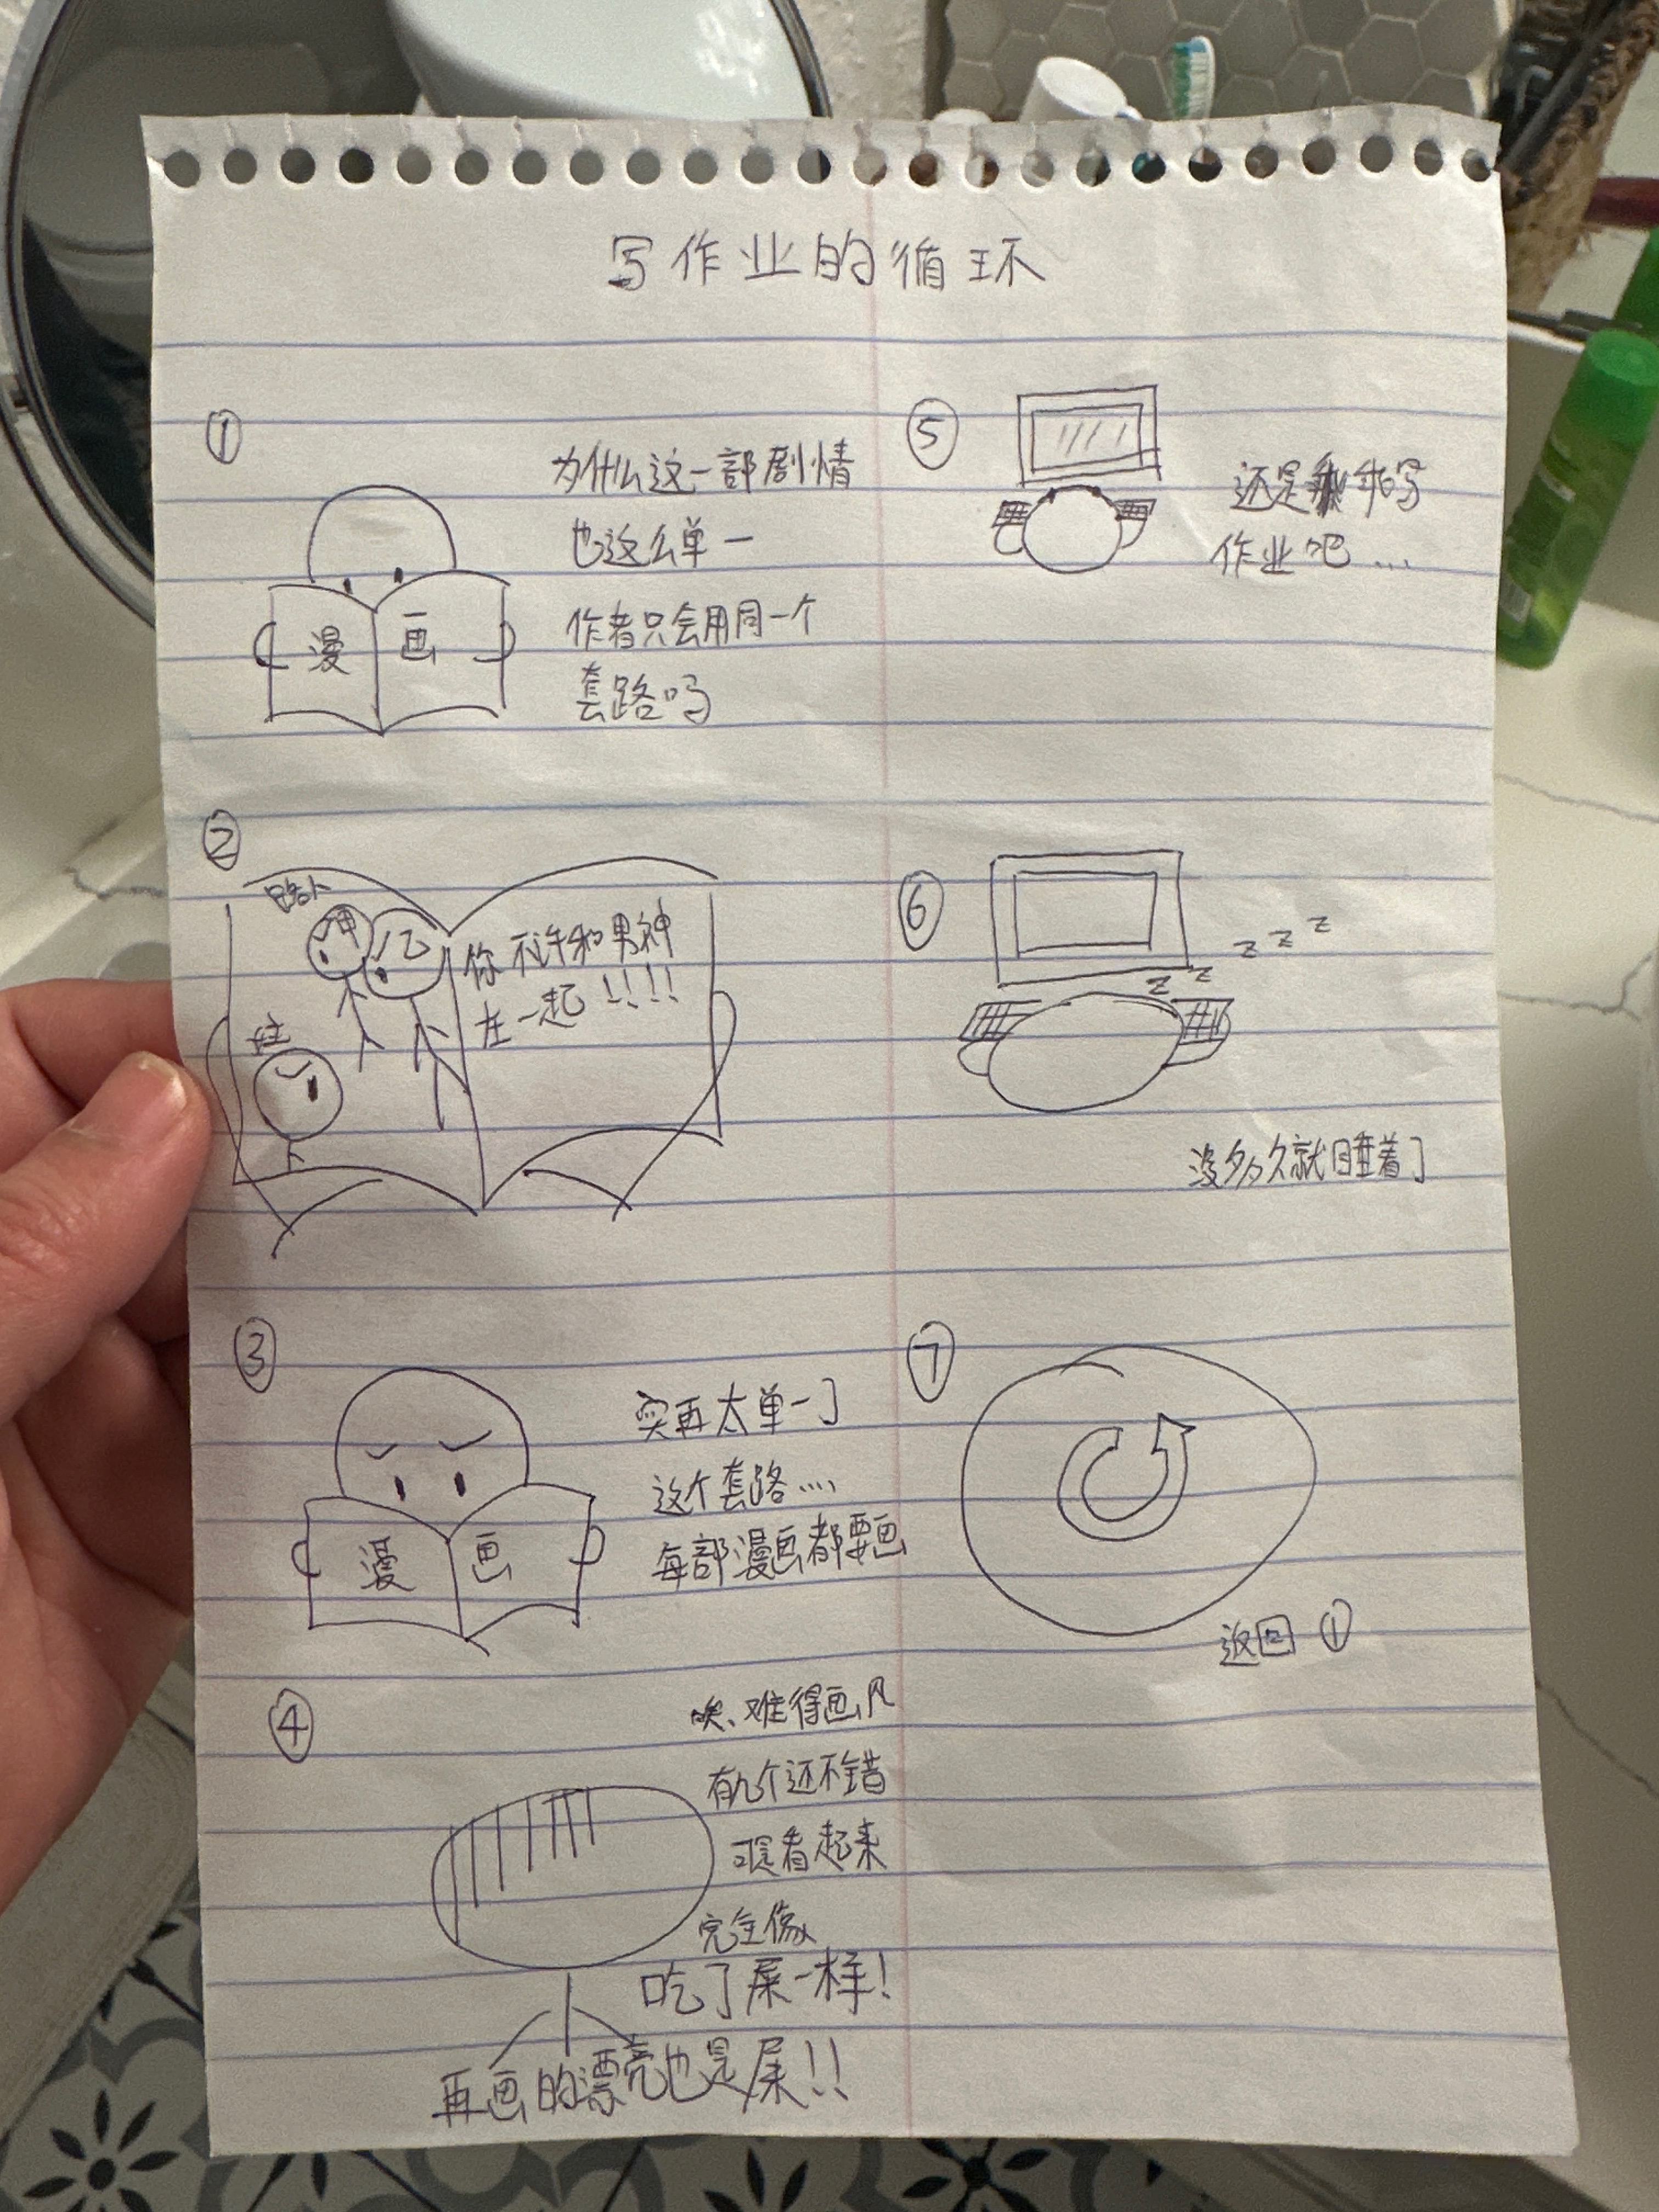 写作业的循环
①
为什么这一部剧情
也这么单一
作者只会用同一个
套路吗
漫画
②
路人
甲
乙
你不许和男神
在一起!!!!
③
实再太单一了
这个套路....
每部漫画都要画
漫画
④
唉、难得画风
有几个还不错
可是看起来
完全像
吃了屎一样!
再画的漂亮也是屎!!
⑤
还是乖乖写
作业吧...
⑥
z z z z z
没多久就睡着了
⑦
返回①